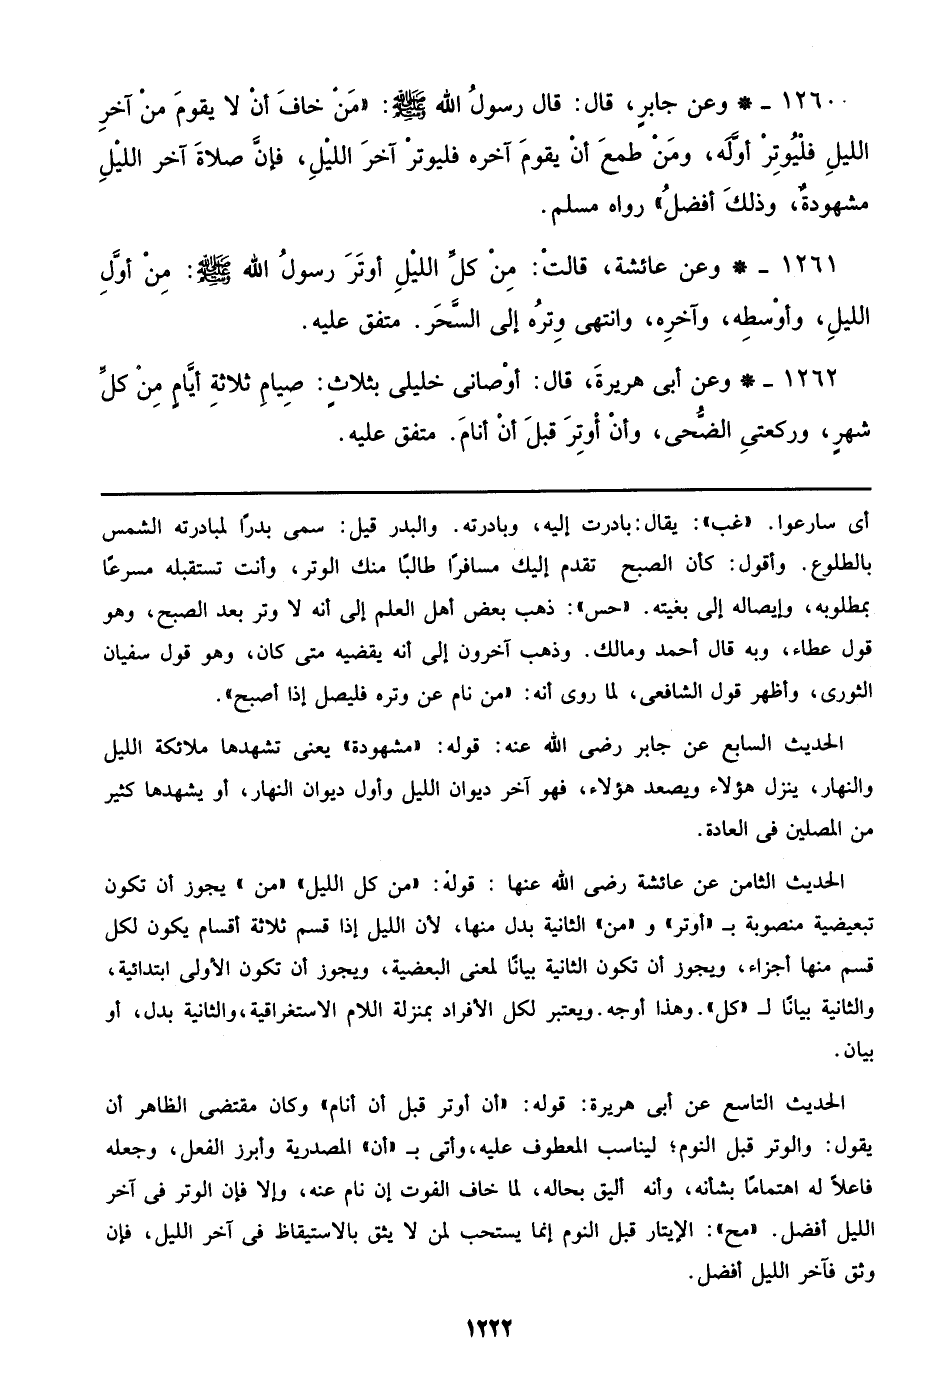 ١٢٦٠ ـ * وعن جابرٍ، قال: قال رسولُ الله ﷺ: «مَنْ خافَ أنْ لا يقومَ منْ آخرِ
الليلِ فلْيُوتِرْ أوَّلَه، ومَنْ طمعَ أنْ يقومَ آخره فليوترْ آخرَ الليْلِ، فإنَّ صلاةَ آخر الليْلِ
مشهودةٌ، وذلكَ أفضلُ» رواه مسلم.
١٢٦١ ـ * وعن عائشة، قالتْ: مِنْ كلِّ الليْلِ أوتَرَ رسولُ الله ﷺ: مِنْ أوَّلِ
الليلِ، وأوْسطِه، وآخرِه، وانتهى وِترُه إلى السَّحَر. متفق عليه.
١٢٦٢ ـ * وعن أبى هريرةَ، قال: أوْصانى خليلى بثلاثٍ: صِيامِ ثلاثةِ أيَّامٍ مِنْ كلِّ
شهرٍ، وركعتىِ الضُّحى، وأنْ أُوتِرَ قبلَ أنْ أنامَ. متفق عليه.
أى سارعوا. «غب»: يقال: بادرت إليه، وبادرته. والبدر قيل: سمى بدرًا لمبادرته الشمس
بالطلوع. وأقول: كأن الصبح تقدم إليك مسافرًا طالبًا منك الوتر، وأنت تستقبله مسرعًا
بمطلوبه، وإيصاله إلى بغيته. «حس»: ذهب بعض أهل العلم إلى أنه لا وتر بعد الصبح، وهو
قول عطاء، وبه قال أحمد ومالك. وذهب آخرون إلى أنه يقضيه متى كان، وهو قول سفيان
الثورى، وأظهر قول الشافعى، لما روى أنه: «من نام عن وتره فليصل إذا أصبح».
الحديث السابع عن جابر رضى الله عنه: قوله: «مشهودة» يعنى تشهدها ملائكة الليل
والنهار، ينزل هؤلاء ويصعد هؤلاء، فهو آخر ديوان الليل وأول ديوان النهار، أو يشهدها كثير
من المصلين فى العادة.
الحديث الثامن عن عائشة رضى الله عنها : قوله: «من كل الليل» «من » يجوز أن تكون
تبعيضية منصوبة بـ «أوتر» و «من» الثانية بدل منها، لأن الليل إذا قسم ثلاثة أقسام يكون لكل
قسم منها أجزاء، ويجوز أن تكون الثانية بيانًا لمعنى البعضية، ويجوز أن تكون الأولى ابتدائية،
والثانية بيانًا لـ «كل». وهذا أوجه. ويعتبر لكل الأفراد بمنزلة اللام الاستغراقية، والثانية بدل، أو
بيان.
الحديث التاسع عن أبى هريرة: قوله: «أن أوتر قبل أن أنام» وكان مقتضى الظاهر أن
يقول: والوتر قبل النوم؛ ليناسب المعطوف عليه، وأتى بـ «أن» المصدرية وأبرز الفعل، وجعله
فاعلاً له اهتمامًا بشأنه، وأنه أليق بحاله، لما خاف الفوت إن نام عنه، وإلا فإن الوتر فى آخر
الليل أفضل. «مح»: الإيتار قبل النوم إنما يستحب لمن لا يثق بالاستيقاظ فى آخر الليل، فإن
وثق فآخر الليل أفضل.
١٢٢٢